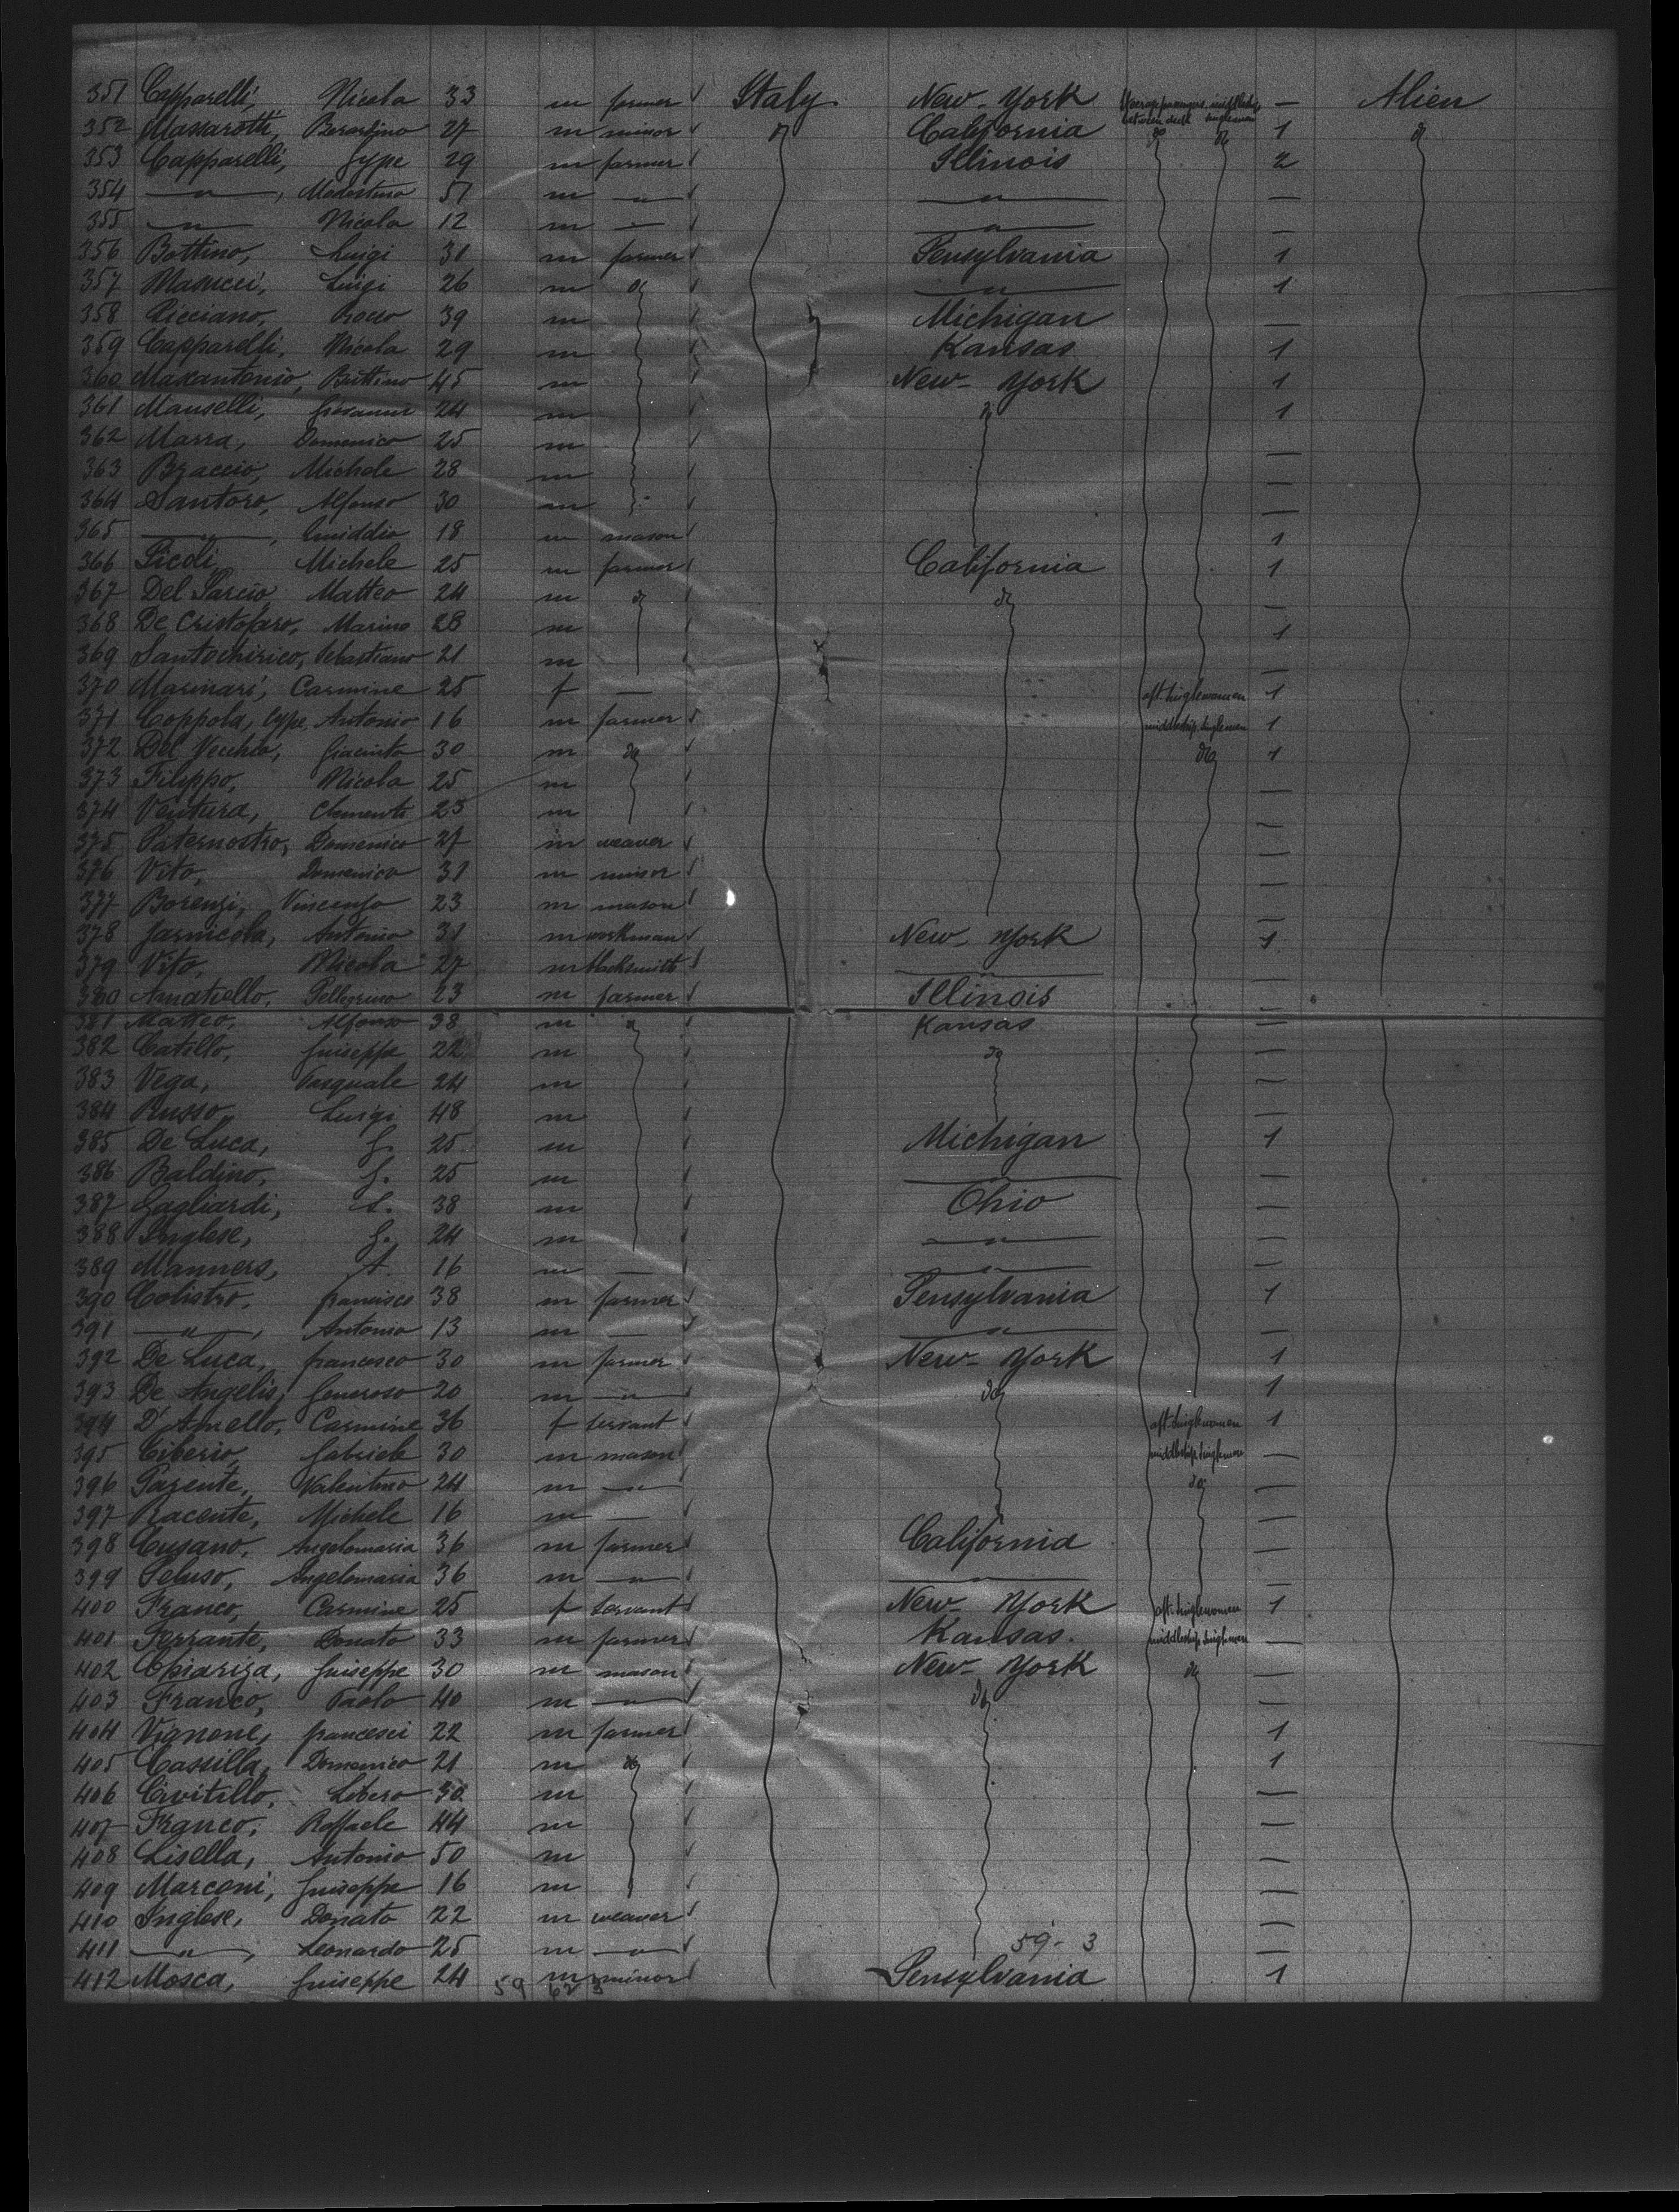 351 Capparelli, Nicola 33 m farmer Italy New-York Steerage passengers middleship between deck singlemen — Alien
352 Massarotti, Berardino 27 m minor do California do do 1 do
353 Capparelli, Gype 29 m farmer Illinois 2
354 —"—, Modestino 51 m —"— —"— —
355 —"— Nicola 12 m — —"— —
356 Bottino, Luigi 31 m farmer Pensylvania 1
357 Masucci, Luigi 26 m do —"— 1
358 Ricciano, Rocco 39 m Michigan —
359 Capparelli, Nicola 29 m Kansas 1
360 Maxantonio, Buttino 45 m New-York 1
361 Manselli, Giovanni 24 m do 1
362 Marra, Domenico 25 m —
363 Braccio, Michele 28 m —
364 Santoro, Alfonso 30 m —
365 —"—, Emiddio 18 m mason 1
366 Picoli, Michele 25 m farmer California 1
367 Del Sarcio, Matteo 24 m do do —
368 De Cristofaro, Marino 28 m 1
369 Santochirico, Sebastiano 21 m —
370 Marinari, Carmine 25 f — aft. singlewomen 1
371 Coppola, Antonio 16 m farmer middleship singlemen 1
372 Del Vecchio, Giacinto 30 m do do 1
373 Filippo, Nicola 25 m —
374 Ventura, Clemente 23 m —
375 Paternostro, Domenico 27 m weaver —
376 Vito, Domenico 31 m minor —
377 Borenzi, Vincenzo 23 m mason —
378 Jarnicola, Antonio 31 m workman New-York 1
379 Vito, Nicola 27 m blacksmith —"— —
380 Amatiello, Pellegrino 23 m farmer Illinois —
381 Matteo, Alfonso 38 m " Kansas —
382 Catillo, Guiseppe 22 m do —
383 Vega, Pasquale 24 m —
384 Russo, Luigi 48 m —
385 De Luca, G. 25 m Michigan 1
386 Baldino, G. 25 m — —
387 Gagliardi, S. 38 m Ohio —
388 Inglese, G. 24 m —"— —
389 Manners, A. 16 m — —"— —
390 Colistro, francisco 38 m farmer Pensylvania 1
391 —"—, Antonio 13 m — —"— —
392 De Luca, francesco 30 m farmer New-York 1
393 De Angelis, Generoso 20 m —"— do 1
394 D'Amello, Carmine 36 f servant aft. singlewomen 1
395 Ciberio, Gabriele 30 m mason middleship singlemen —
396 Parente, Valentino 24 m —"— do —
397 Racente, Michele 16 m — —
398 Cusano, Angelomaria 36 m farmer California —
399 Peluso, Angelomaria 36 m —"— —"— —
400 Franco, Carmine 25 f servant New-York aft. singlewomen 1
401 Ferrante, Donato 33 m farmer Kansas. middleship singlemen —
402 Chiariza, Guiseppe 30 m mason New-York do —
403 Franco, Paolo 40 m —"— do —
404 Vignone, francesci 22 m farmer 1
405 Cassilla, Domenico 21 m do 1
406 Civitillo, Libero 30 m —
407 Franco, Raffaele 44 m —
408 Lisella, Antonio 50 m —
409 Marconi, Guiseppe 16 m —
410 Inglese, Donato 22 m weaver —
411 —"—, Leonardo 25 m —"— 59-3 —
412 Mosca, Guiseppe 24 m minor Pensylvania 1
59 62 3